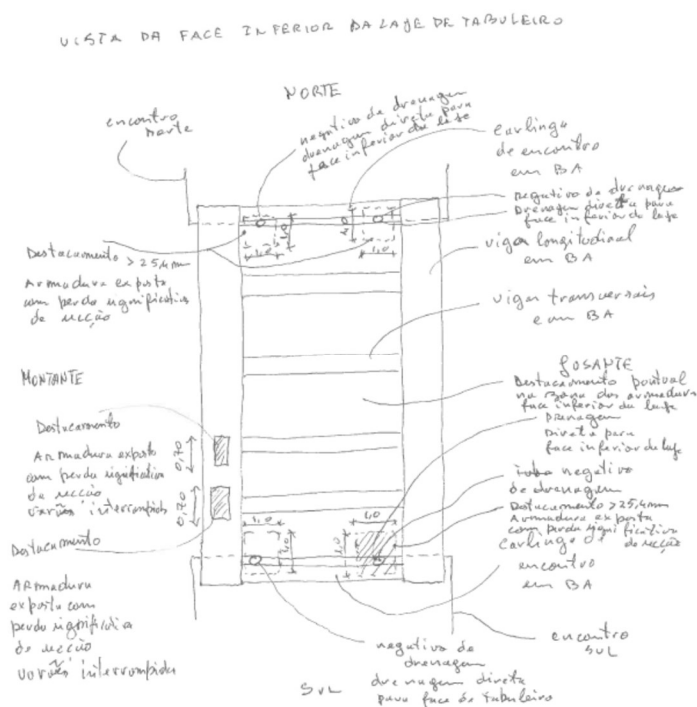 VISTA DA FACE INFERIOR DA LAJE DE TABULEIRO
NORTE
encontro
norte
negativo de drenagem
drenagem direta para
face inferior da laje
carlinga
de encontro
em BA
negativo de drenagem
Drenagem direta para
face inferior da laje
viga longitudinal
em BA
1.0
1.0
1.0
1.0
Destacamento > 25,4mm
Armadura exposta
com perda significativa
de secção
vigas transversais
em BA
MONTANTE
JOSANTE
Destacamento pontual
na zona das armadura
face inferior da laje
Drenagem
Direta para
face inferior da laje
Destacamento
Armadura exposta
com perda significativa
de secção
varões interrompidos
0,70
0,70
negativo
de drenagem
Destacamento >25,4mm
Armadura exposta
com perda significativa
de secção
1.0
1.0
1.0
1.0
Carlinga de
encontro
em BA
Destacamento
Armadura
exposta com
perda significativa
de secção
varões interrompidos
encontro
SUL
negativo de
drenagem
drenagem direta
para face de tabuleiro
SUL